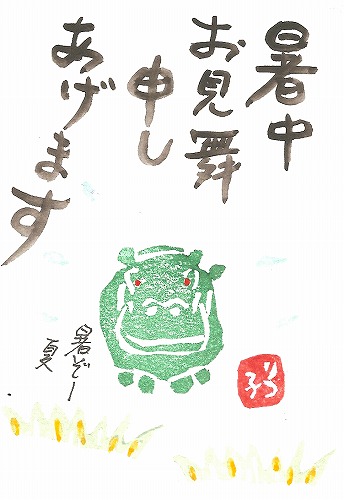 暑中
お見舞
申し
あげます
暑ぞー
夏